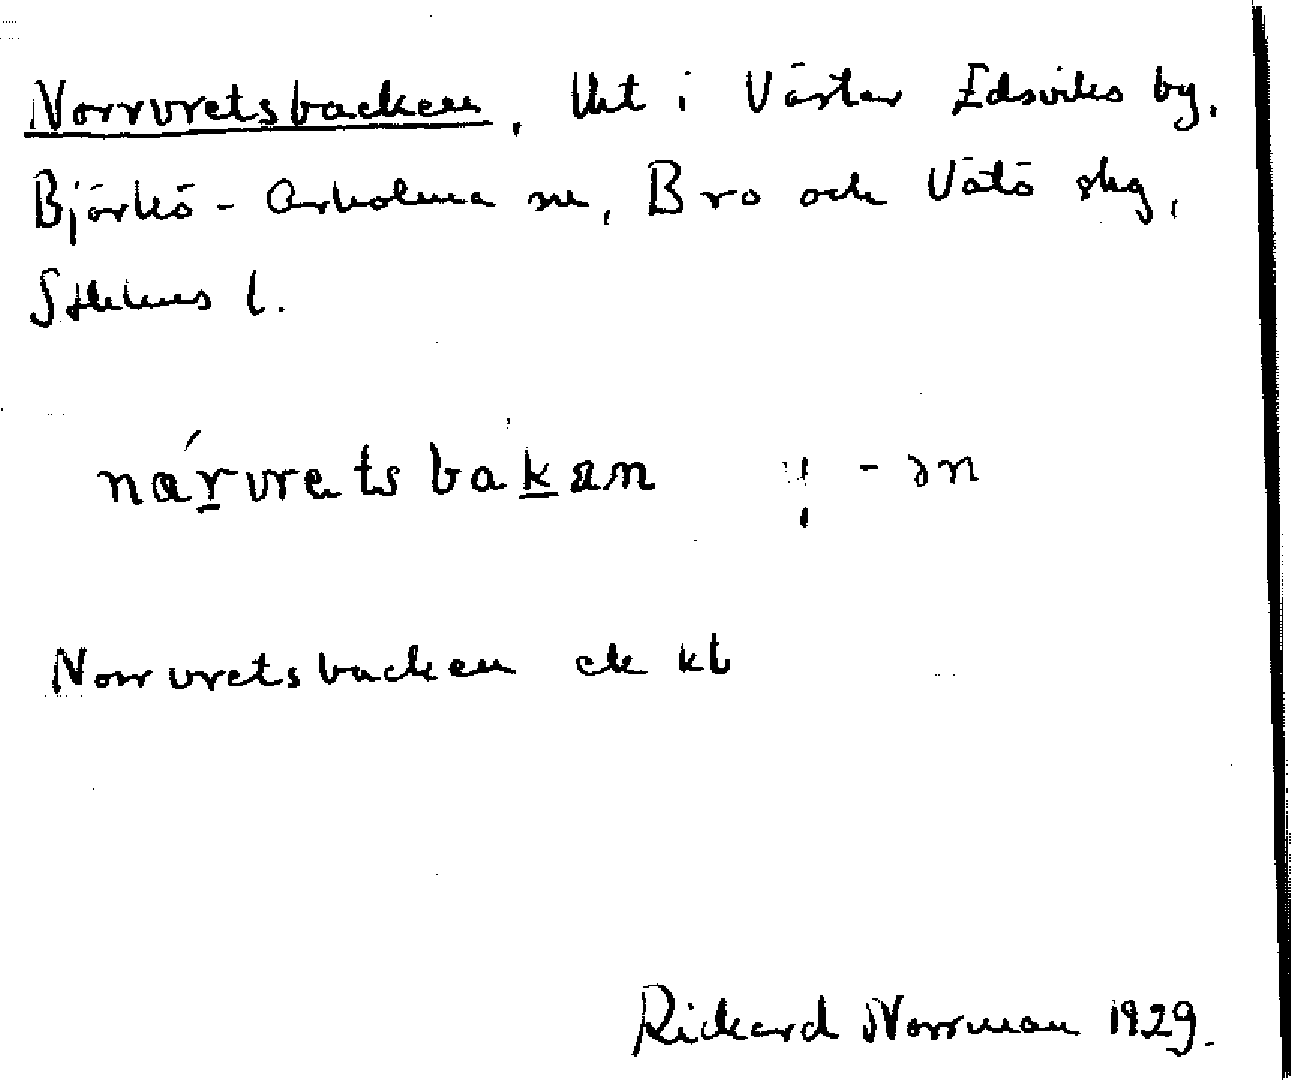 Norrvretsbacken, Uht i Väster Edsviks by,
Björkö-Arholma sn, Bro och Vätö skg,
Sthlms l.
nárvretsbakan -ən
Norrvretsbacken ek kb
Rickard Norrman 1929.